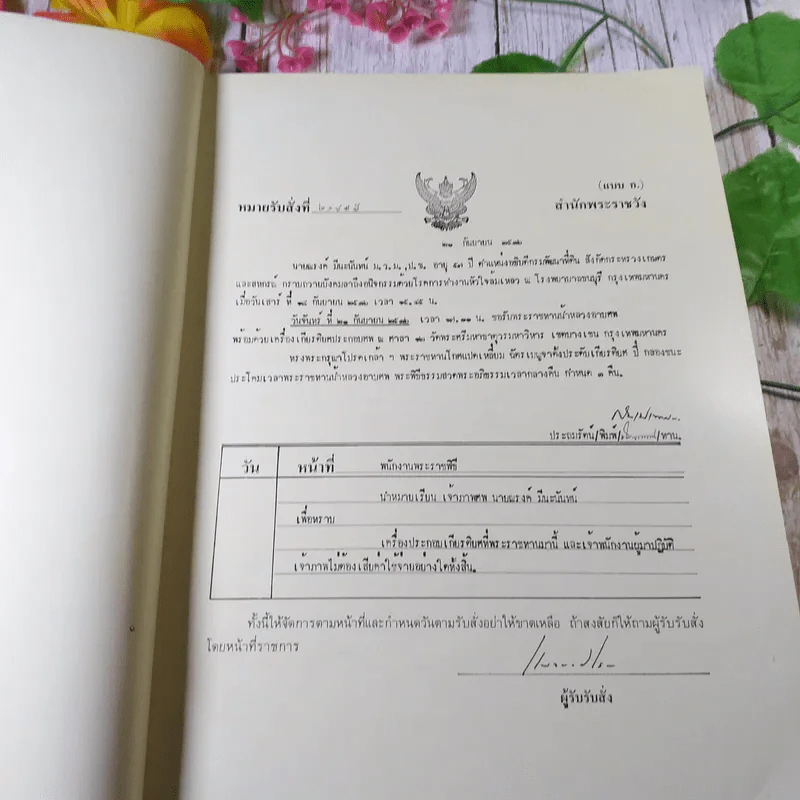 (แบบ ก.)
หมายรับสั่งที่ ๒๑๔๙๘ สำนักพระราชวัง
๒๑ กันยายน ๒๕๓๖
นายณรงค์ มีนะนันทน์ ม.ว.ม., ป.ช. อายุ ๕๗ ปี ตำแหน่งอธิบดีกรมพัฒนาที่ดิน สังกัดกระทรวงเกษตร
และสหกรณ์ กราบถวายบังคมลาถึงอนิจกรรมด้วยโรคการทำงานหัวใจล้มเหลว ณ โรงพยาบาลธนบุรี กรุงเทพมหานคร
เมื่อวันเสาร์ ที่ ๑๘ กันยายน ๒๕๓๖ เวลา ๑๕.๔๕ น.
วันจันทร์ ที่ ๒๐ กันยายน ๒๕๓๖ เวลา ๑๗.๓๐ น. ขอรับพระราชทานน้ำหลวงอาบศพ
พร้อมด้วยเครื่องเกียรติยศประกอบศพ ณ ศาลา ๑๒ วัดพระศรีมหาธาตุวรมหาวิหาร เขตบางเขน กรุงเทพมหานคร
ทรงพระกรุณาโปรดเกล้า ฯ พระราชทานโกศแปดเหลี่ยม ฉัตรเบญจาตั้งประดับเกียรติยศ ปี่ กลองชนะ
ประโคมเวลาพระราชทานน้ำหลวงอาบศพ พระพิธีธรรมสวดพระอภิธรรมเวลากลางคืน กำหนด ๓ คืน.
ประถมรัตน์/พิมพ์/ /ทาน.
วัน หน้าที่ พนักงานพระราชพิธี
นำหมายเรียน เจ้าภาพศพ นายณรงค์ มีนะนันทน์
เพื่อทราบ
เครื่องประกอบเกียรติยศที่พระราชทานมานี้ และเจ้าพนักงานผู้มาปฏิบัติ
เจ้าภาพไม่ต้องเสียค่าใช้จ่ายอย่างใดทั้งสิ้น.
ทั้งนี้ให้จัดการตามหน้าที่และกำหนดวันตามรับสั่งอย่าให้ขาดเหลือ ถ้าสงสัยก็ให้ถามผู้รับรับสั่ง
โดยหน้าที่ราชการ
ผู้รับรับสั่ง